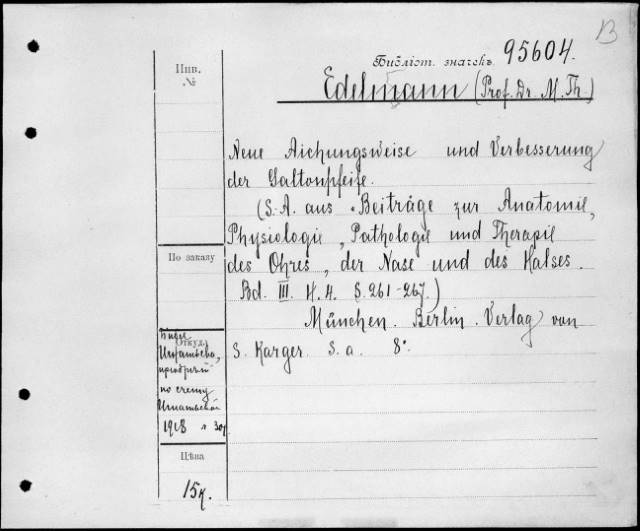 B
Библіот. значекъ 95604.
Инв.
№
Edelmann (Prof. Dr. M. Th.)
Neue Aichungsweise und Verbesserung
der Galtonpfeife.
(S.-A. aus „Beiträge zur Anatomie,
Physiologie, Pathologie und Therapie
des Ohres, der Nase und des Halses.
Bd. III. H. 4. S. 261-267.)
München. Berlin. Verlag von
S. Karger. S. a. 8°.
По заказу
Откуда
Игнатьева,
по счету
1908
Цѣна
15к.